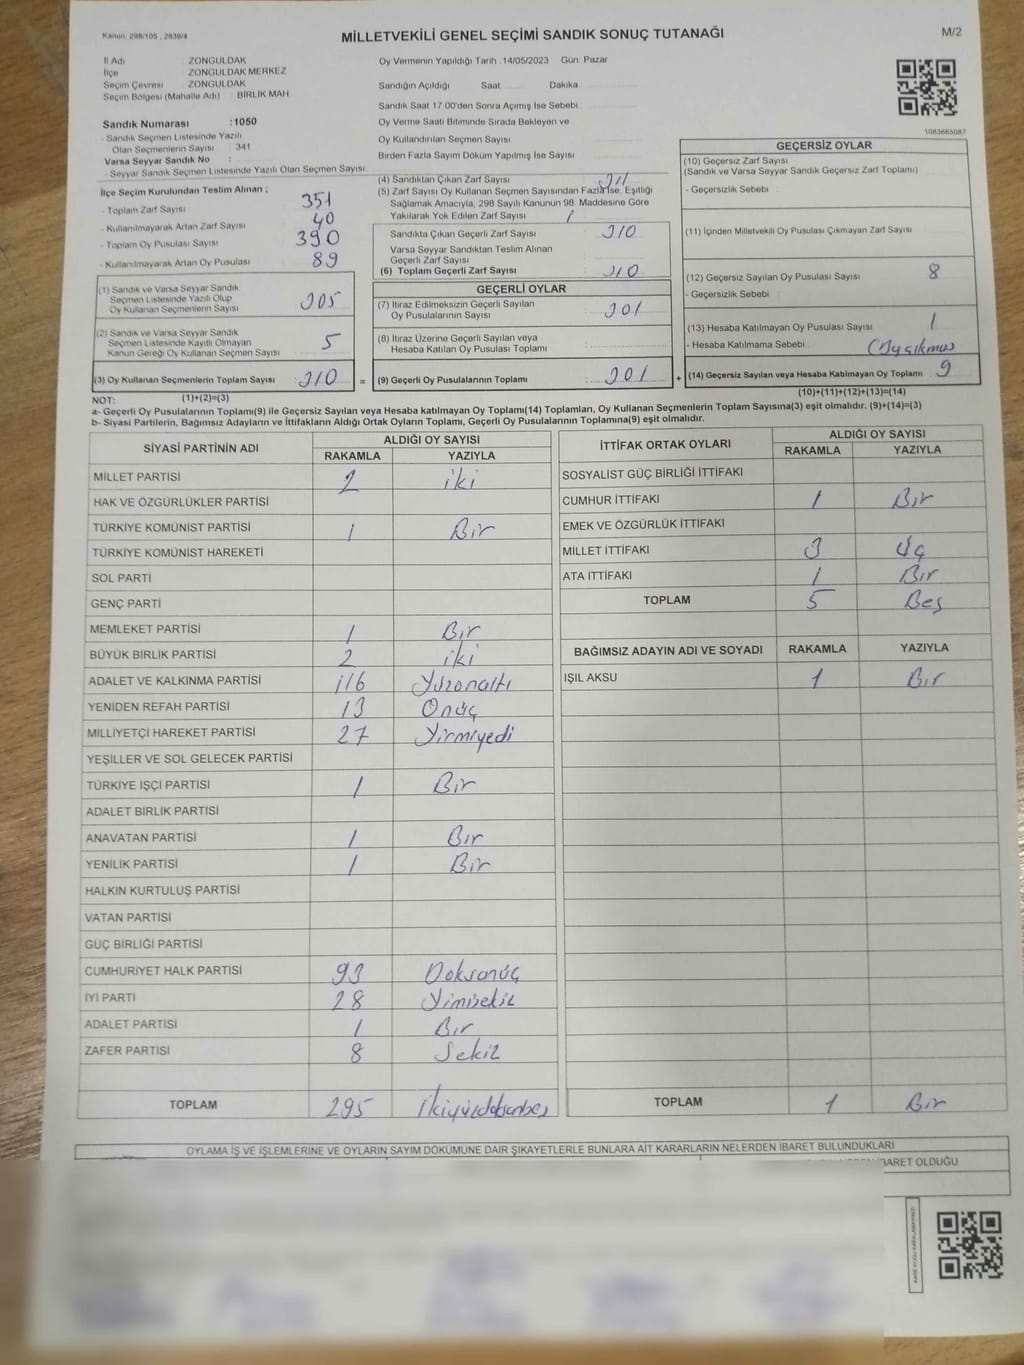 Kanun: 298/105, 2839/4
MİLLETVEKİLİ GENEL SEÇİMİ SANDIK SONUÇ TUTANAĞI
M/2
İl Adı : ZONGULDAK
İlçe : ZONGULDAK MERKEZ
Seçim Çevresi : ZONGULDAK
Seçim Bölgesi (Mahalle Adı) : BİRLİK MAH
Oy Vermenin Yapıldığı Tarih : 14/05/2023 Gün: Pazar
Sandığın Açıldığı Saat Dakika
Sandık Saat 17.00'den Sonra Açımış İse Sebebi
Oy Verme Saati Bitiminde Sırada Bekleyen ve
Oy Kullandırılan Seçmen Sayısı
Birden Fazla Sayım Döküm Yapılmış İse Sayısı
1083665087
Sandık Numarası : 1050
- Sandık Seçmen Listesinde Yazılı
Olan Seçmenlerin Sayısı : 341
Varsa Seyyar Sandık No :
- Seyyar Sandık Seçmen Listesinde Yazılı Olan Seçmen Sayısı:
İlçe Seçim Kurulundan Teslim Alınan ;
- Toplam Zarf Sayısı 351
- Kullanılmayarak Artan Zarf Sayısı 40
- Toplam Oy Pusulası Sayısı 390
- Kullanılmayarak Artan Oy Pusulası 89
(1) Sandık ve Varsa Seyyar Sandık
Seçmen Listesinde Yazılı Olup
Oy Kullanan Seçmenlerin Sayısı 205
(2) Sandık ve Varsa Seyyar Sandık
Seçmen Listesinde Kayıtlı Olmayan
Kanun Gereği Oy Kullanan Seçmen Sayısı 5
(3) Oy Kullanan Seçmenlerin Toplam Sayısı : 210 =
(4) Sandıktan Çıkan Zarf Sayısı 211
(5) Zarf Sayısı Oy Kullanan Seçmen Sayısından Fazla İse, Eşitliği
Sağlamak Amacıyla, 298 Sayılı Kanunun 98. Maddesine Göre
Yakılarak Yok Edilen Zarf Sayısı 1
Sandıkta Çıkan Geçerli Zarf Sayısı 210
Varsa Seyyar Sandıktan Teslim Alınan
Geçerli Zarf Sayısı
(6) Toplam Geçerli Zarf Sayısı 210
GEÇERLİ OYLAR
(7) İtiraz Edilmeksizin Geçerli Sayılan
Oy Pusulalarının Sayısı 201
(8) İtiraz Üzerine Geçerli Sayılan veya
Hesaba Katılan Oy Pusulası Toplamı
(9) Geçerli Oy Pusulalarının Toplamı : 201 +
GEÇERSİZ OYLAR
(10) Geçersiz Zarf Sayısı
(Sandık ve Varsa Seyyar Sandık Geçersiz Zarf Toplamı)
- Geçersizlik Sebebi
(11) İçinden Milletvekili Oy Pusulası Çıkmayan Zarf Sayısı
(12) Geçersiz Sayılan Oy Pusulası Sayısı 8
- Geçersizlik Sebebi
(13) Hesaba Katılmayan Oy Pusulası Sayısı 1
- Hesaba Katılmama Sebebi :
(14) Geçersiz Sayılan veya Hesaba Katılmayan Oy Toplamı 9
NOT: (1)+(2)=(3)
(10)+(11)+(12)+(13)=(14)
a- Geçerli Oy Pusulalarının Toplamı(9) ile Geçersiz Sayılan veya Hesaba katılmayan Oy Toplamı(14) Toplamları, Oy Kullanan Seçmenlerin Toplam Sayısına(3) eşit olmalıdır. (9)+(14)=(3)
b- Siyasi Partilerin, Bağımsız Adayların ve İttifakların Aldığı Ortak Oyların Toplamı, Geçerli Oy Pusulalarının Toplamına(9) eşit olmalıdır.
SİYASİ PARTİNİN ADI ALDIĞI OY SAYISI
RAKAMLA YAZIYLA
MİLLET PARTİSİ 2 iki
HAK VE ÖZGÜRLÜKLER PARTİSİ
TÜRKİYE KOMÜNİST PARTİSİ 1 Bir
TÜRKİYE KOMÜNİST HAREKETİ
SOL PARTİ
GENÇ PARTİ
MEMLEKET PARTİSİ 1 Bir
BÜYÜK BİRLİK PARTİSİ 2 iki
ADALET VE KALKINMA PARTİSİ 116 Yüzonaltı
YENİDEN REFAH PARTİSİ 13 Onüç
MİLLİYETÇİ HAREKET PARTİSİ 27 Yirmiyedi
YEŞİLLER VE SOL GELECEK PARTİSİ
TÜRKİYE İŞÇİ PARTİSİ 1 Bir
ADALET BİRLİK PARTİSİ
ANAVATAN PARTİSİ 1 Bir
YENİLİK PARTİSİ 1 Bir
HALKIN KURTULUŞ PARTİSİ
VATAN PARTİSİ
GÜÇ BİRLİĞİ PARTİSİ
CUMHURİYET HALK PARTİSİ 93 Doksanüç
İYİ PARTİ 28 Yimisekiz
ADALET PARTİSİ 1 Bir
ZAFER PARTİSİ 8 Sekiz
TOPLAM 295 İkiyüzdoksanbeş
İTTİFAK ORTAK OYLARI ALDIĞI OY SAYISI
RAKAMLA YAZIYLA
SOSYALİST GÜÇ BİRLİĞİ İTTİFAKI
CUMHUR İTTİFAKI 1 Bir
EMEK VE ÖZGÜRLÜK İTTİFAKI
MİLLET İTTİFAKI 3 Üç
ATA İTTİFAKI 1 Bir
TOPLAM 5 Beş
BAĞIMSIZ ADAYIN ADI VE SOYADI RAKAMLA YAZIYLA
IŞIL AKSU 1 Bir
TOPLAM 1 Bir
OYLAMA İŞ VE İŞLEMLERİNE VE OYLARIN SAYIM DÖKÜMÜNE DAİR ŞİKAYETLERLE BUNLARA AİT KARARLARIN NELERDEN İBARET BULUNDUKLARI
İBARET OLDUĞU